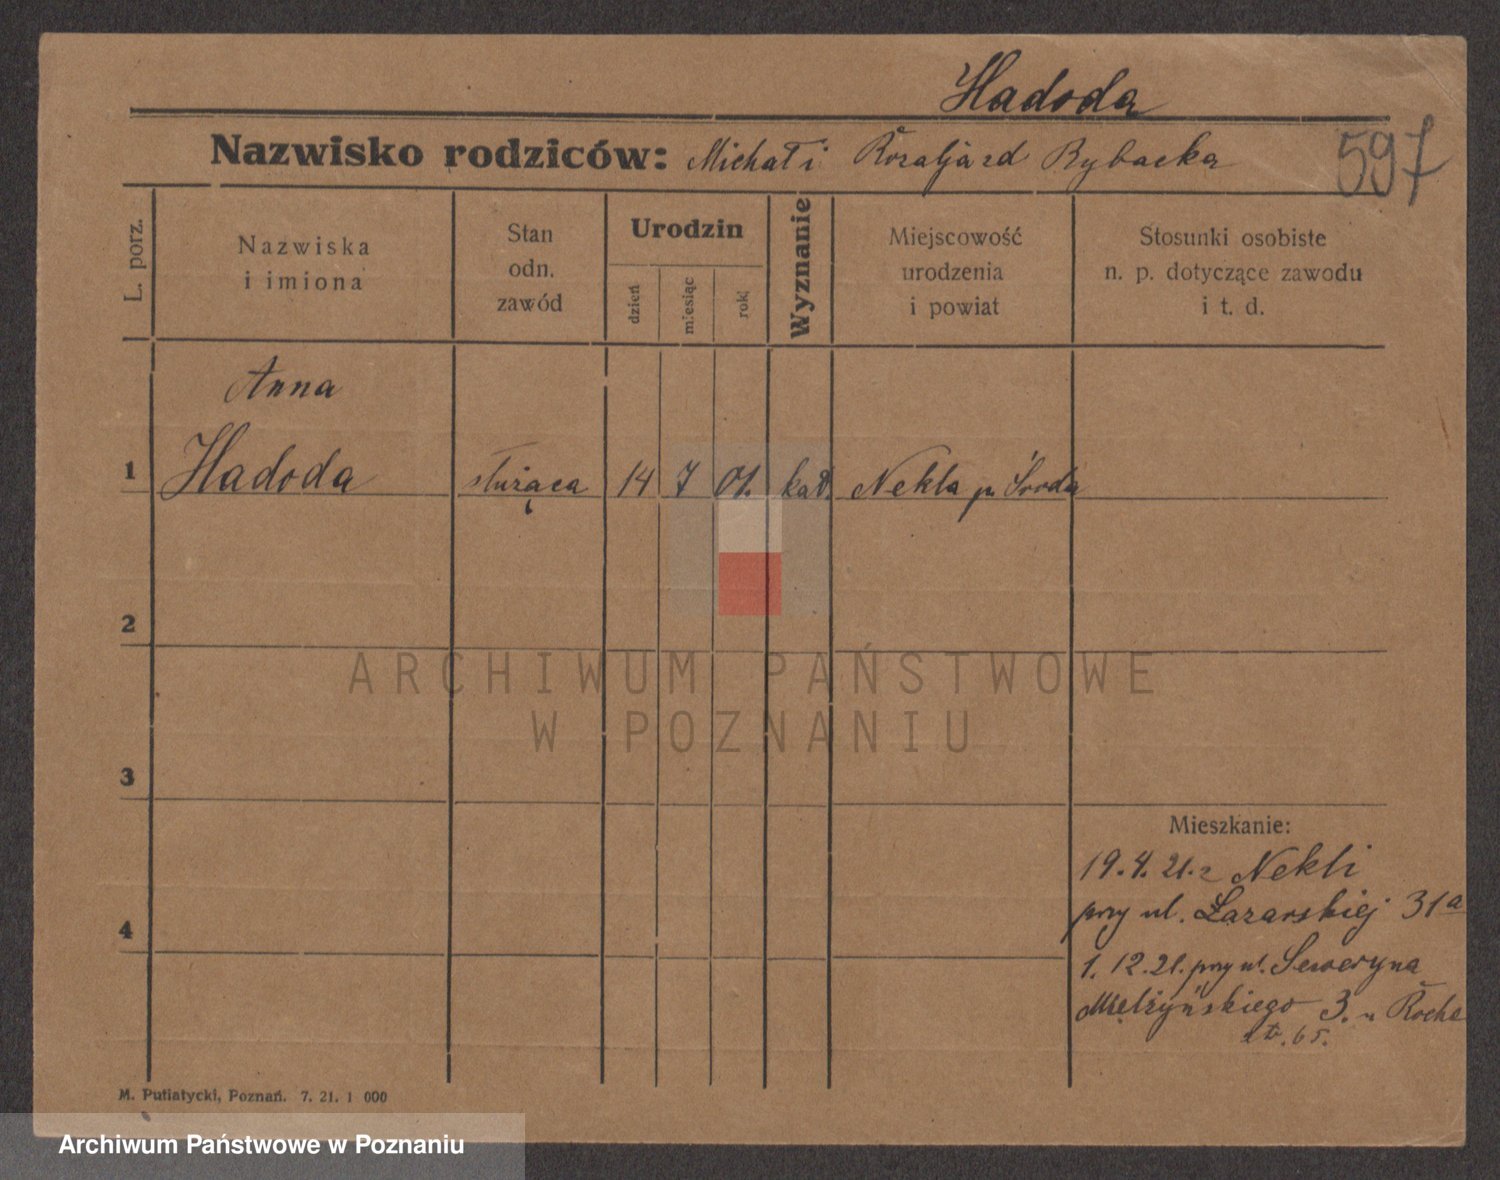 Hadoda
Nazwisko rodziców: Michał i Rozalja zd Rybacka
597
L. porz.
Nazwiska
i imiona
Stan
odn.
zawód
Urodzin
dzień
miesiąc
rok
Wyznanie
Miejscowość
urodzenia
i powiat
Stosunki osobiste
n. p. dotyczące zawodu
i t. d.
Anna
1 Hadoda służąca 14 7 01. kat. Nekla p. Środa
2
ARCHIWUM PAŃSTWOWE
W POZNANIU
3
Mieszkanie:
19.4.21. z Nekli
przy ul. Łazarskiej 31a
4
1.12.21. przy ul. Seweryna
Mielżyńskiego 3. u Roche
str. 65.
M. Putiatycki, Poznań. 7. 21. 1 000
Archiwum Państwowe w Poznaniu